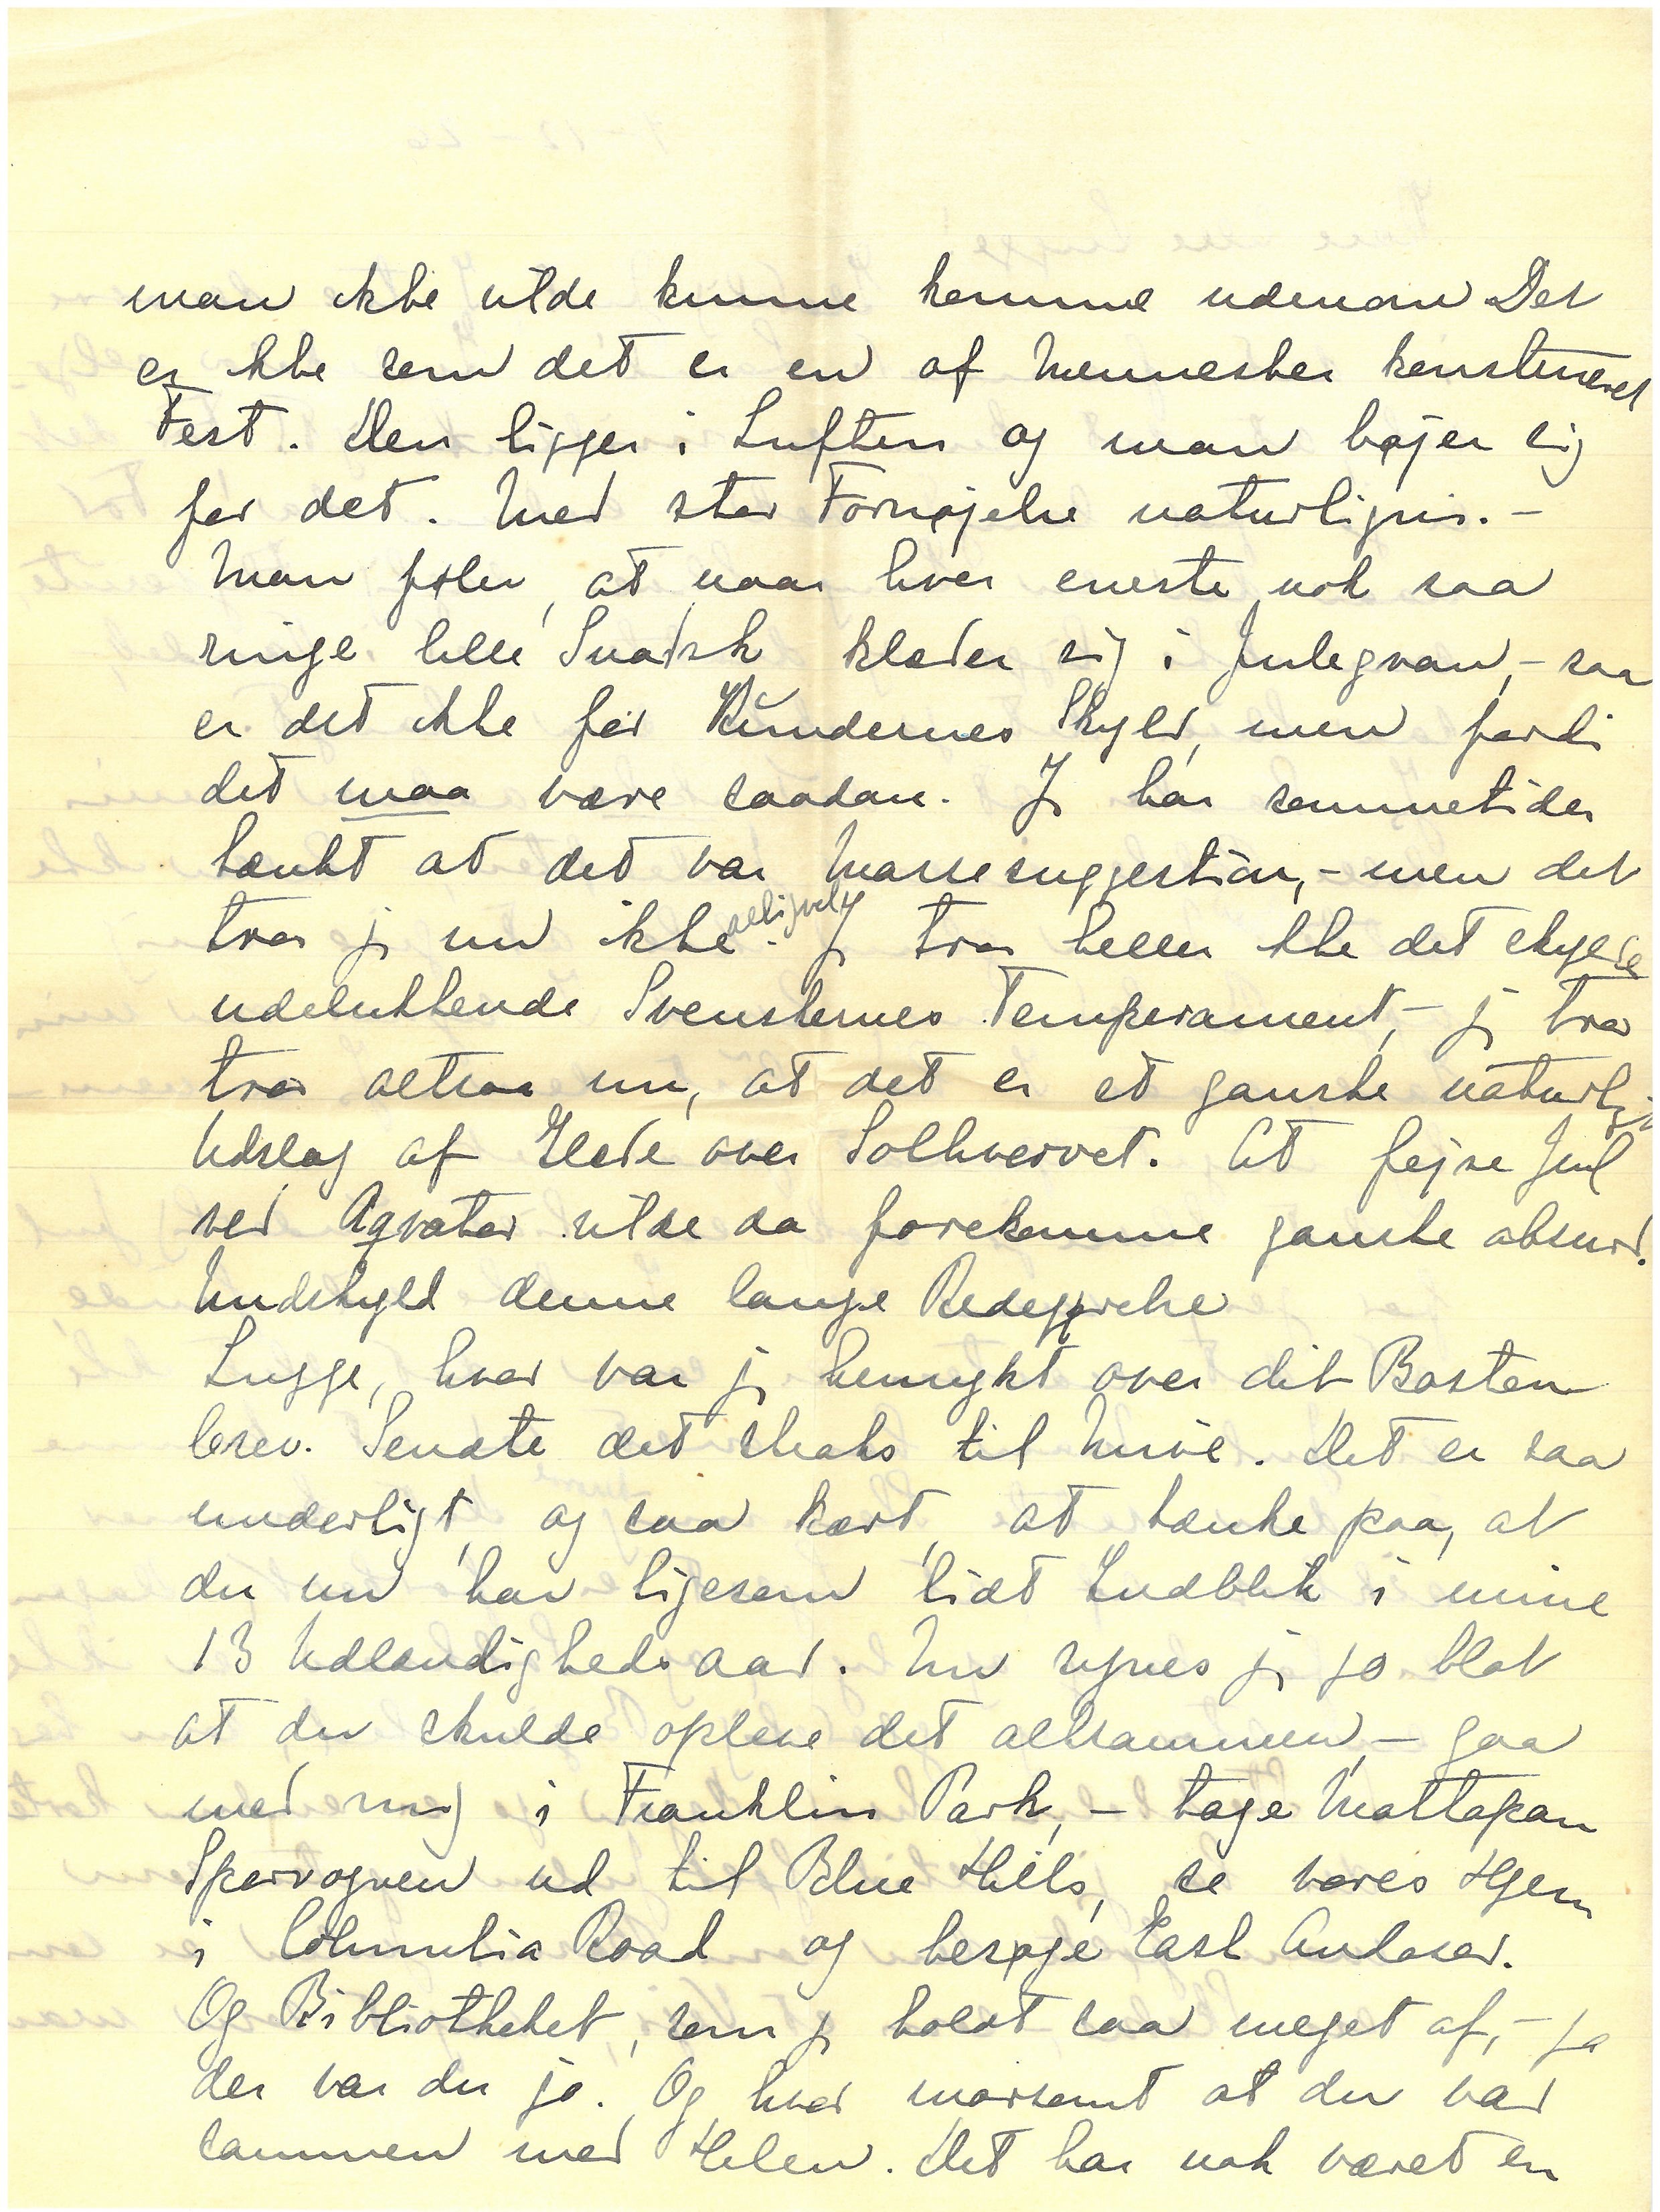 man ikke vilde kunne komme udenom Det
er ikke som det er en af Mennesker konstrueret
Fest. Den ligger i Luften og man bøjer sig
for det. Med stor Fornøjelse naturligvis. -
Man føler, at naar hver eneste nok saa
ringe lille Snadsk klæder sig i Julegran, - saa
er det ikke for Kundernes Skyld, men fordi
det maa være saadan. Jeg har sommetider
tænkt at det var Massesuggestion, - men det
tror jeg nu ikke alligevel. Jeg tror heller ikke det skyldes
udelukkende Svenskernes Temperament, - jeg tror
tror altsaa nu, at det er et ganske naturligt
Udslag af Glæde over Solhvervet. At fejre Jul
ved Ækvator vilde da forekomme ganske absurd.
Undskyld denne lange Redegørelse
Lugge, hvor var jeg henrykt over dit Boston
brev. Sendte det straks til Mine. Det er saa
underligt, og saa kært, at tænke paa, at
du nu har ligesom lidt Indblik i mine
13 Udlændigheds aar. Nu synes jeg jo blot
at du skulde opleve det altsammen, - gaa
med mig i Franklin Park, - tage Mattapan
Sporvognen ud til Blue Hills, se vores Hjem
i Columbia Road og besøge East Andover.
Og Bibliotheket, som jeg holdt saa meget af, - ja
der var du jo. Og hvor morsomt at du var
sammen med Helen. Det har nok været en